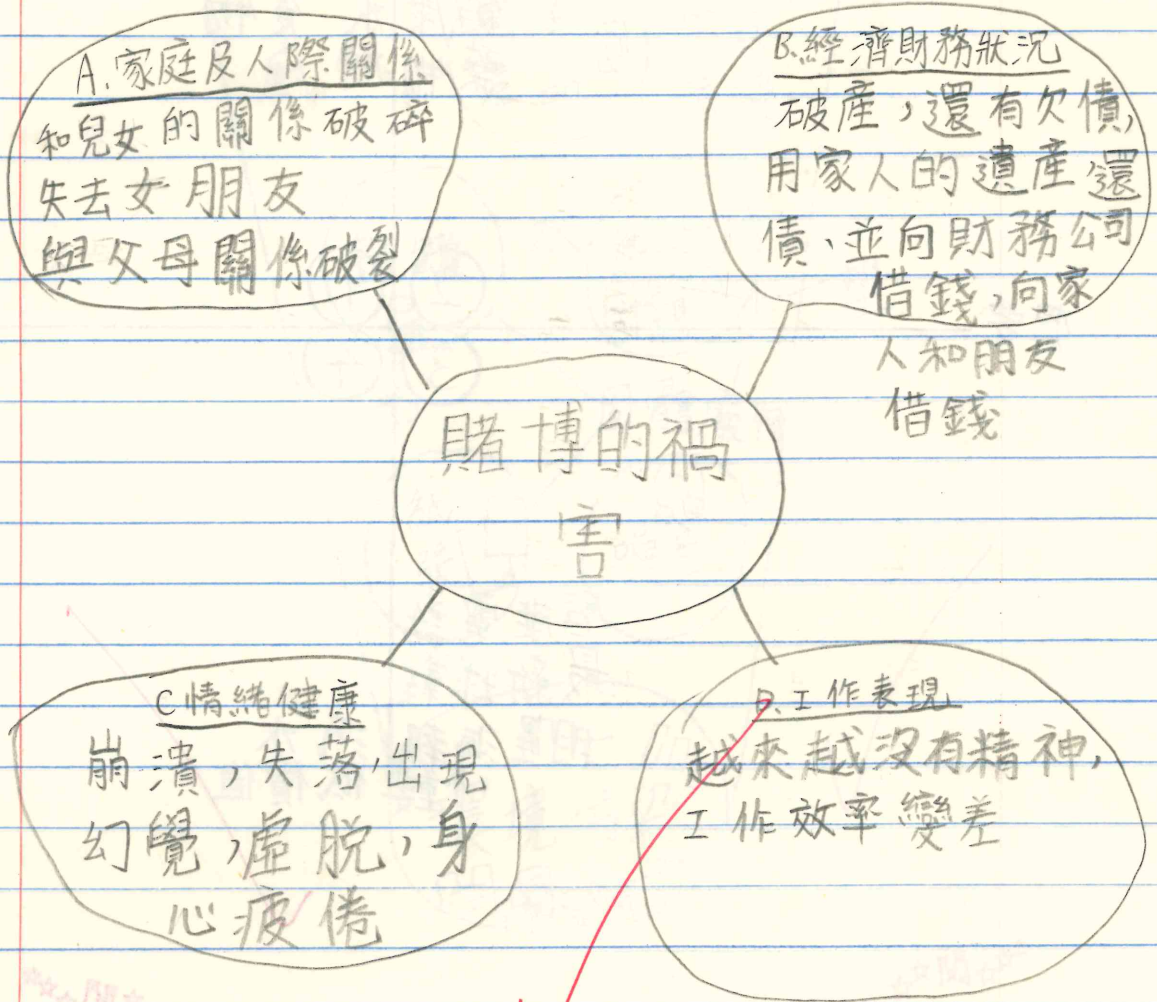 A.家庭及人際關係
和兒女的關係破碎
失去女朋友
與父母關係破裂
B.經濟財務狀況
破產，還有欠債，
用家人的遺產還
債、並向財務公司
借錢，向家
人和朋友
借錢
賭博的禍
害
C情緒健康
崩潰，失落，出現
幻覺，虛脫，身
心疲倦
D.工作表現
越來越沒有精神，
工作效率變差